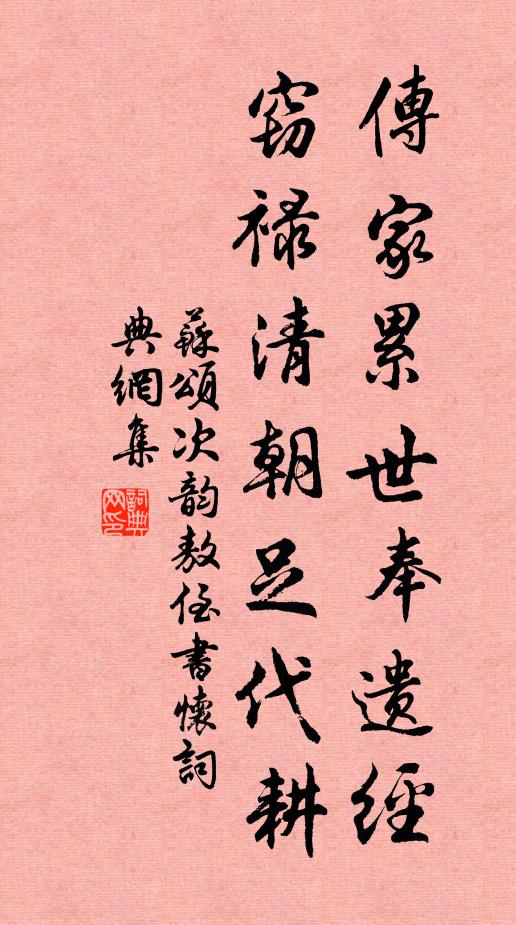 傳家累世奉遺經
竊禄清朝足代耕
蘇頌次韵敖侄書懷詞
典網集
詞典
网印